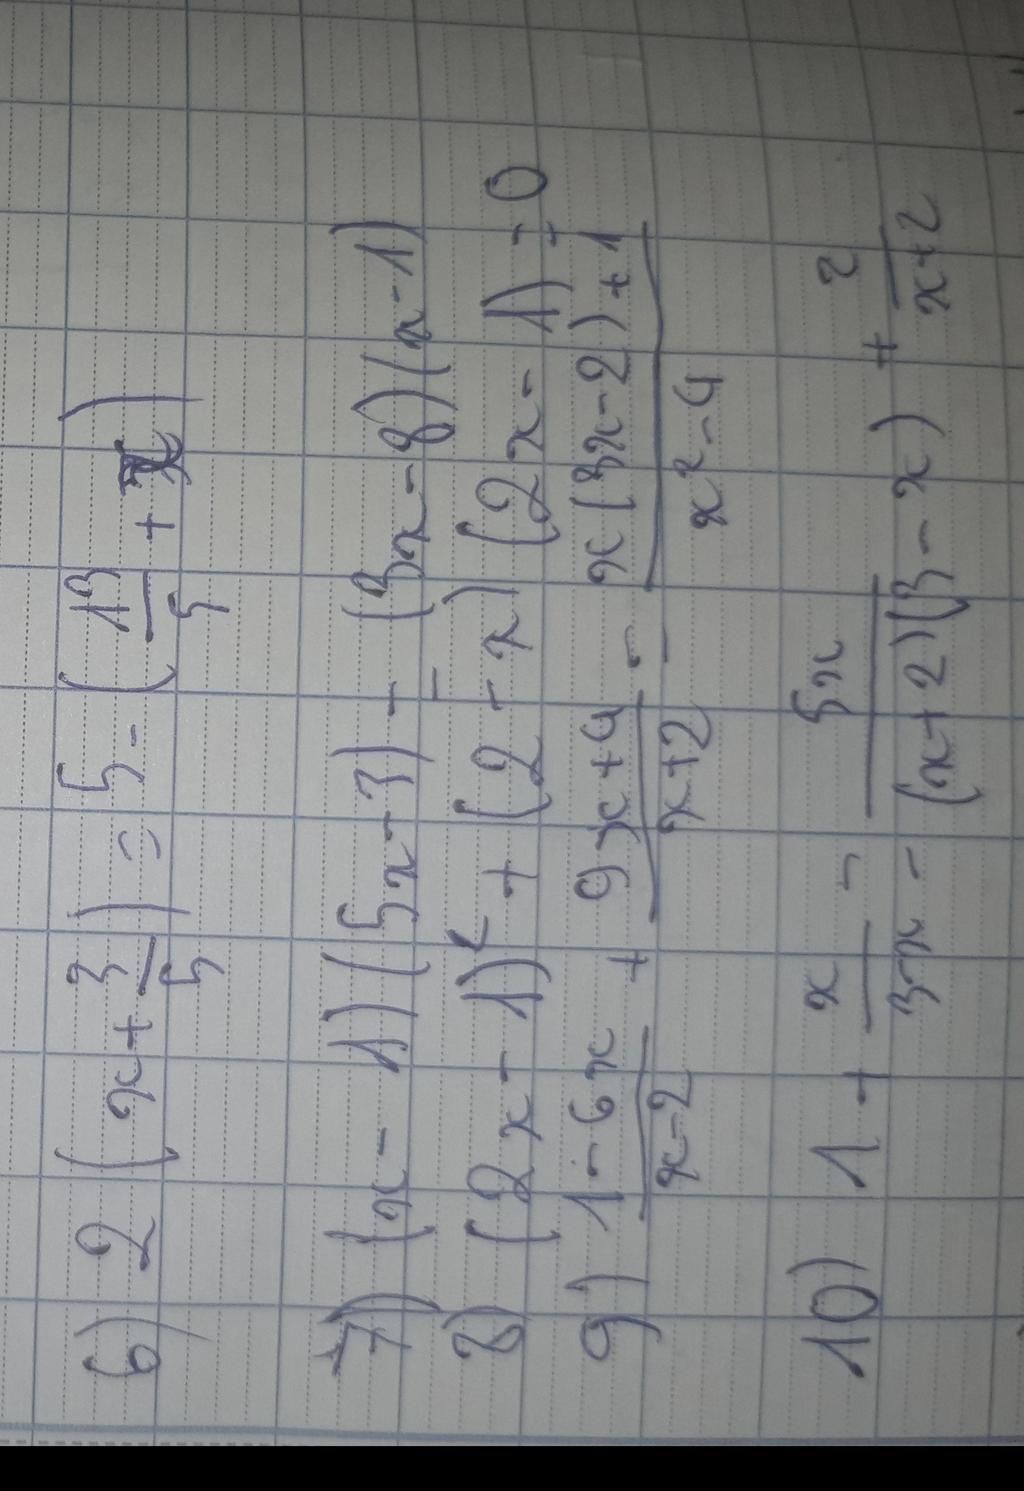 6) 2 (x + 3/5) = 5 - (13/5 + x)
7) (x - 1)(5x + 3) = (3x - 8)(x - 1)
8) (2x - 1)² + (2 - x)(2x - 1) = 0
9) (1 - 6x)/(x - 2) + (9x + 4)/(x + 2) = (x(3x - 2) + 1)/(x² - 4)
10) 1 + x/(3-x) = 5x/((x + 2)(3 - x)) + 2/(x + 2)